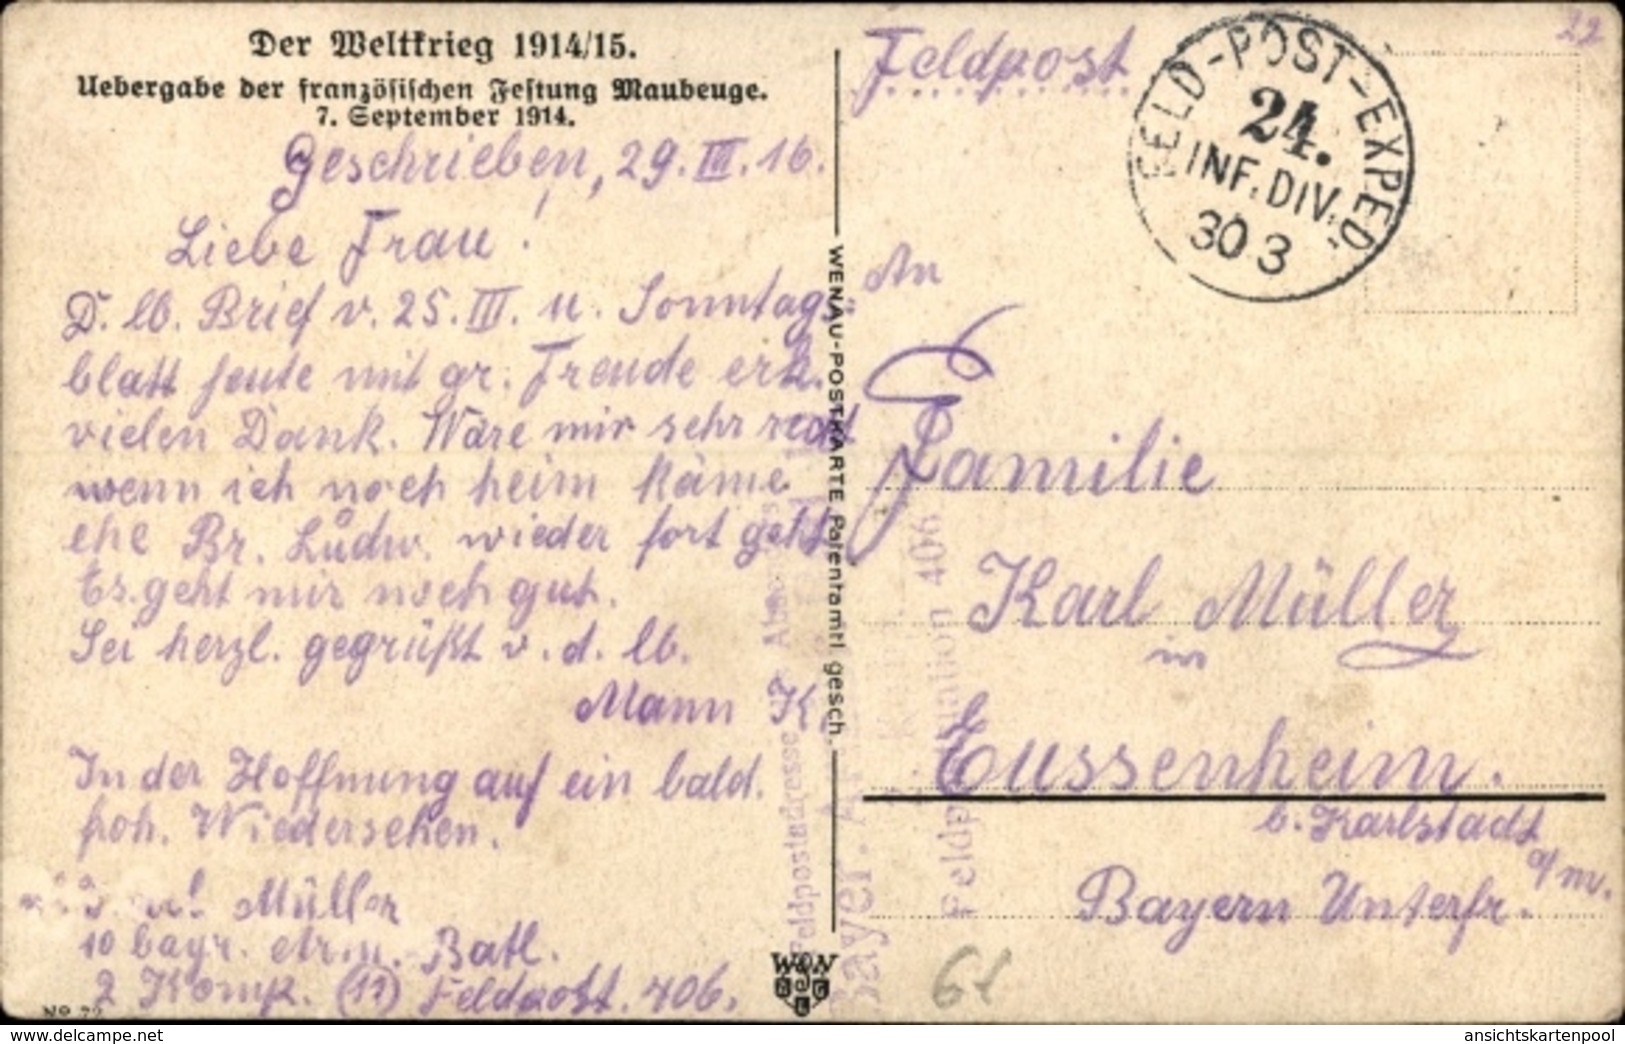 Der Weltkrieg 1914/15.
Uebergabe der französischen Festung Maubeuge.
7. September 1914.
Geschrieben, 29. III. 16.
Liebe Frau!
D. lb. Brief v. 25. III. u. Sonntags-
blatt heute mit gr. Freude erh.
vielen Dank. Wäre mir sehr recht
wenn ich noch heim käme
ehe Br. Ludw. wieder fort geht
Es geht mir noch gut.
Sei herzl. gegrüßt v. d. lb.
Mann K.
In der Hoffnung auf ein bald.
froh. Wiedersehen.
Müller
10 bayr. Batl.
2 Komp. (11) Feldpost. 406.
No. 72
WENAU-POSTKARTE Patentamtl. gesch.
Feldpost
22
FELD-POST-EXPED.
24.
INF. DIV.
30 3
An
Familie
Karl Müller
in
Eussenheim.
b. Karlstadt
a/M.
Bayern Unterfr.
Feldpostadresse
Bayer.
406
61
ansichtskartenpool
https://www.delcampe.net